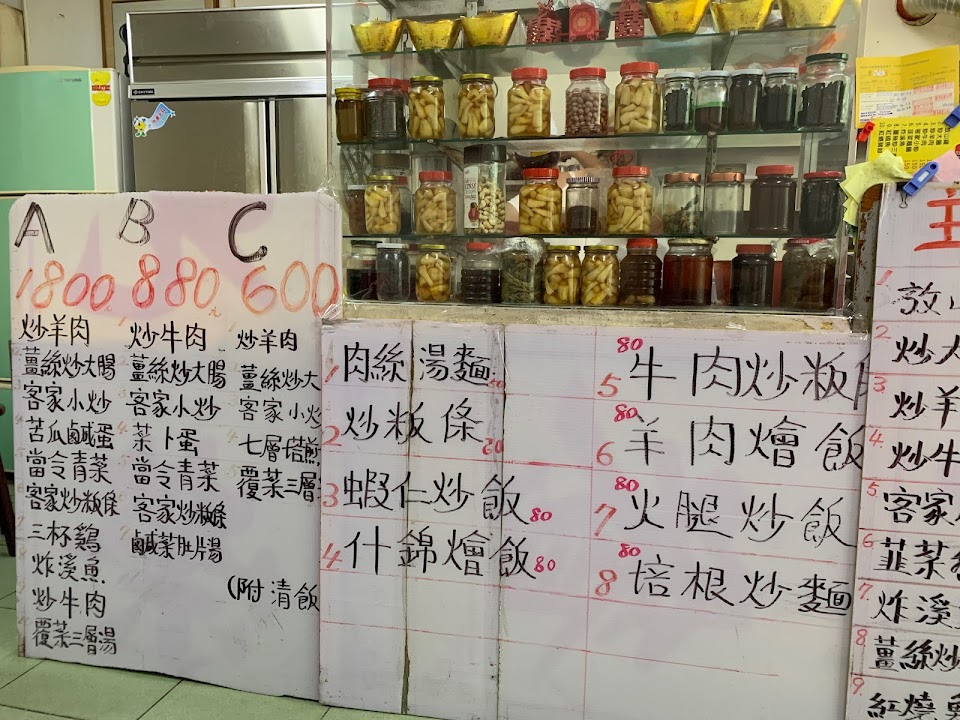 A
1800元
炒羊肉
薑絲炒大腸
客家小炒
苦瓜鹹蛋
當令青菜
客家炒粄條
三杯鷄
炸溪魚
炒牛肉
覆菜三層湯
B
880元
炒牛肉
薑絲炒大腸
客家小炒
菜卜蛋
當令青菜
客家炒粄條
鹹菜肚片湯
C
600
炒羊肉
薑絲炒大
客家小炒
七層塔煎
覆菜三層
(附清飯
1 肉絲湯麵 50
2 炒粄條 60
3 蝦仁炒飯 80
4 什錦燴飯 80
5 牛肉炒粄 80
6 羊肉燴飯 80
7 火腿炒飯 80
8 培根炒麵 80
主
1. 放山
2 炒大
3 炒羊
4. 炒牛
5 客家
6. 韮菜
7. 炸溪
8 薑絲炒
9. 紅燒魚